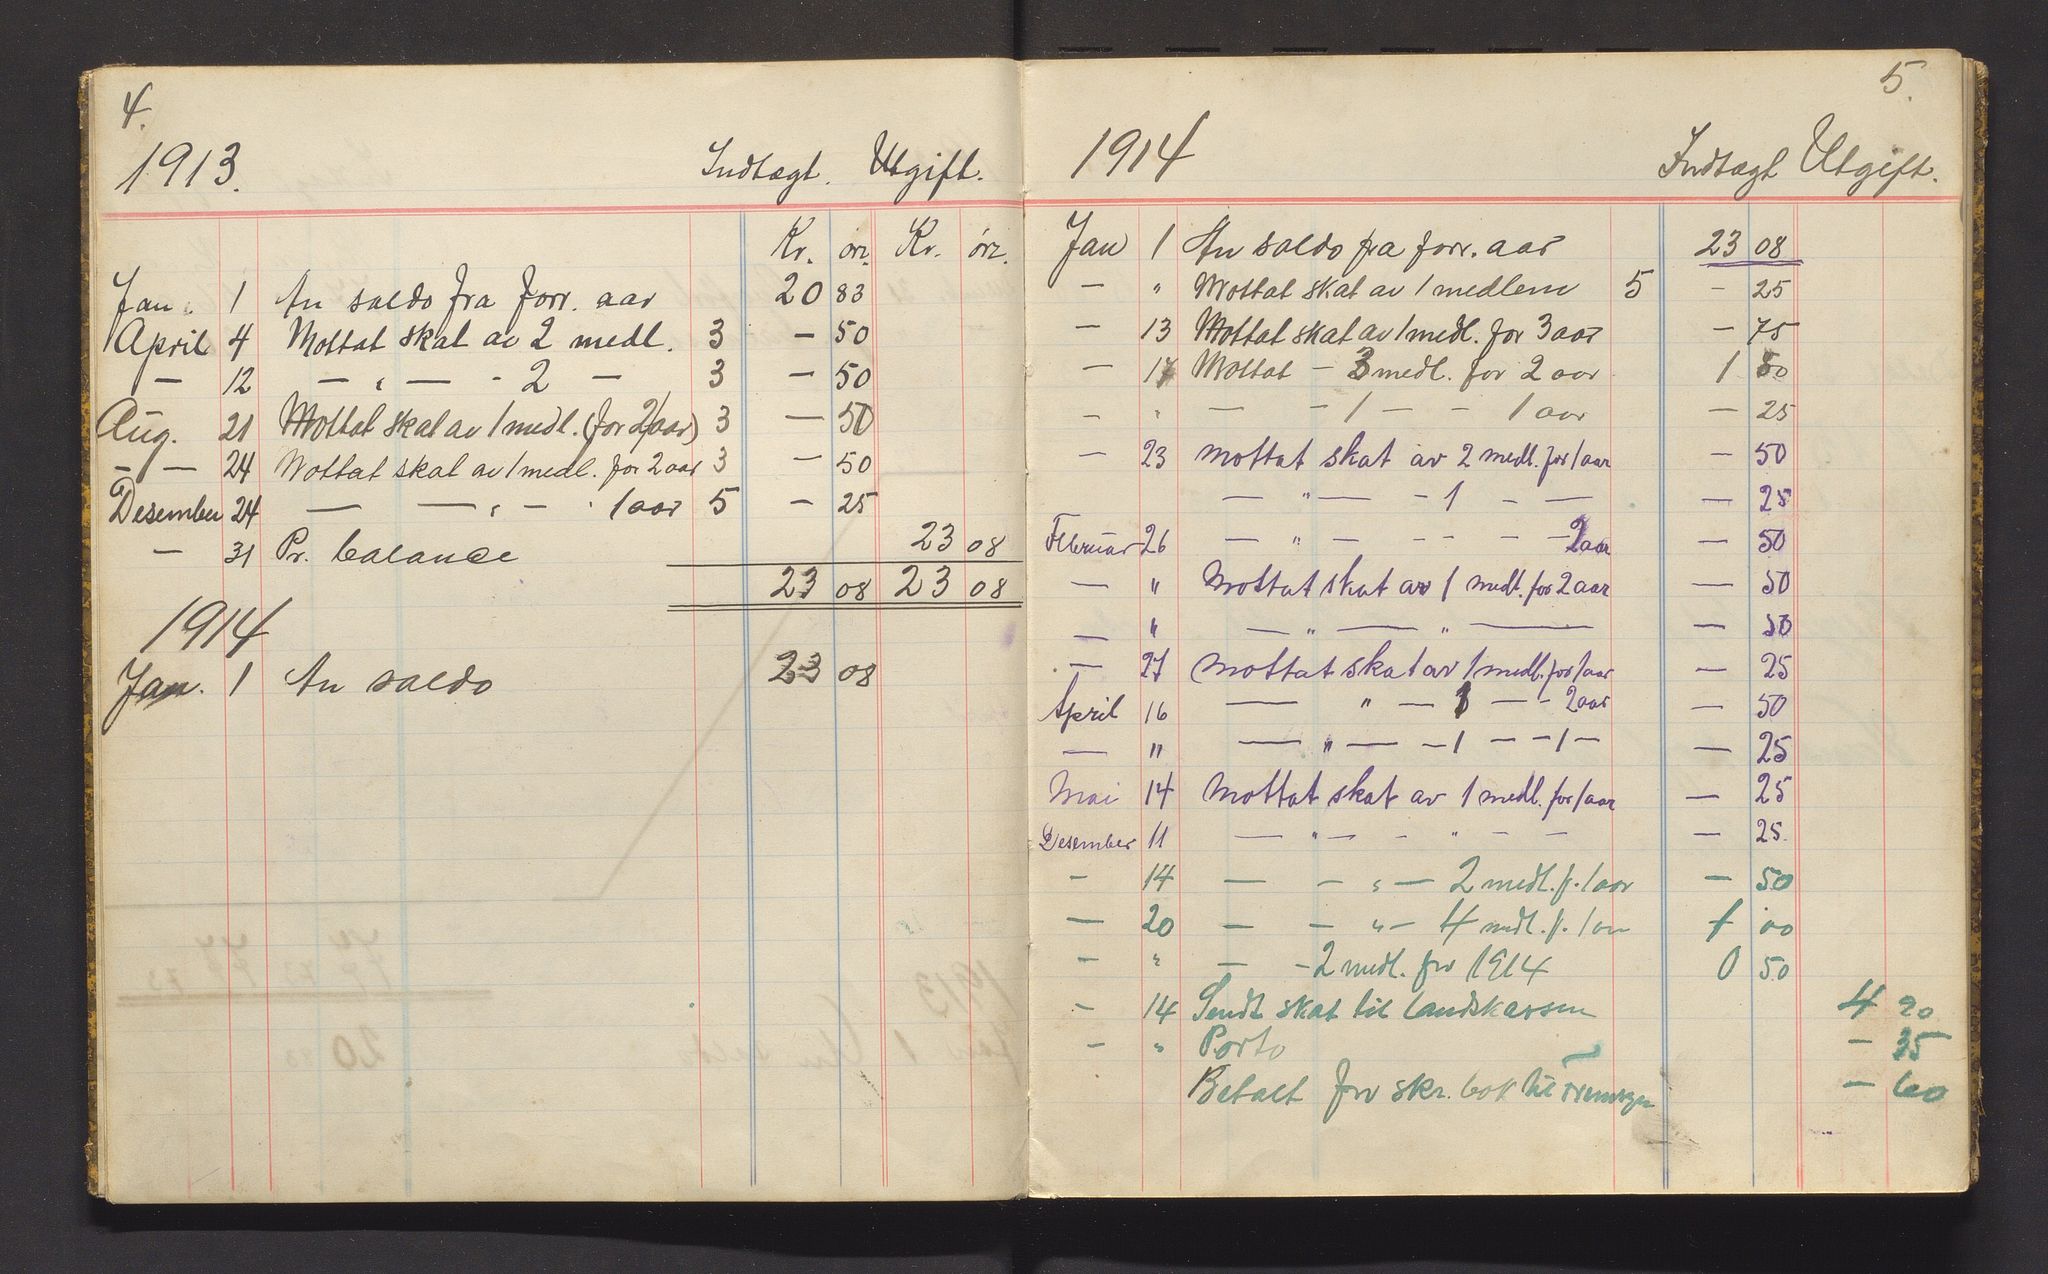 4.
1913. Indtægt. Utgift.
Kr. ör. Kr. ör.
Jan. 1 An saldo fra forr. aar 20 83
April 4 Mottat skat av 2 medl. 3 — 50
— 12 — „ — - 2 — 3 — 50
Aug. 21 Mottat skat av 1 medl. (for 2 aar) 3 — 50
— — 24 Mottat skat av 1 medl. for 2 aar 3 — 50
Desember 24 — — „ — „ 1 aar 5 — 25
— 31 Pr. balance 23 08
23 08 23 08
1914
Jan. 1 An saldo 23 08
5.
1914 Indtægt Utgift.
Jan 1 An saldo fra forr. aar 23 08
— „ Mottat skat av 1 medlem 5 — 25
— 13 Mottat skat av 1 medl. for 3 aar — 75
— 17 Mottat — 3 medl. for 2 aar 1 50
— „ — - 1 — - 1 aar — 25
— 23 Mottat skat av 2 medl. for 1 aar — 50
— „ — - 1 - — — 25
Februar 26 — „ — - - - - 2 aar — 50
— „ Mottat skat av 1 medl. for 2 aar — 50
— „ — „ — „ — — 50
— 27 Mottat skat av 1 medl. for 1 aar — 25
April 16 — „ — 1 — - 2 aar — 50
— „ — „ — - 1 — - 1 — — 25
Mai 14 Mottat skat av 1 medl. for 1 aar — 25
Desember 11 — „ — - „ - — — 25.
- 14 — - „ — 2 medl. f. 1 aar — 50
— 20 — - „ - 4 mdl. f. 1 aar 1 00
- „ — - 2 medl. for 1914 0 50
- 14 Sendt skat til landskassen 4 20
- „ Porto — 35
Betalt for skr. bok til — 60